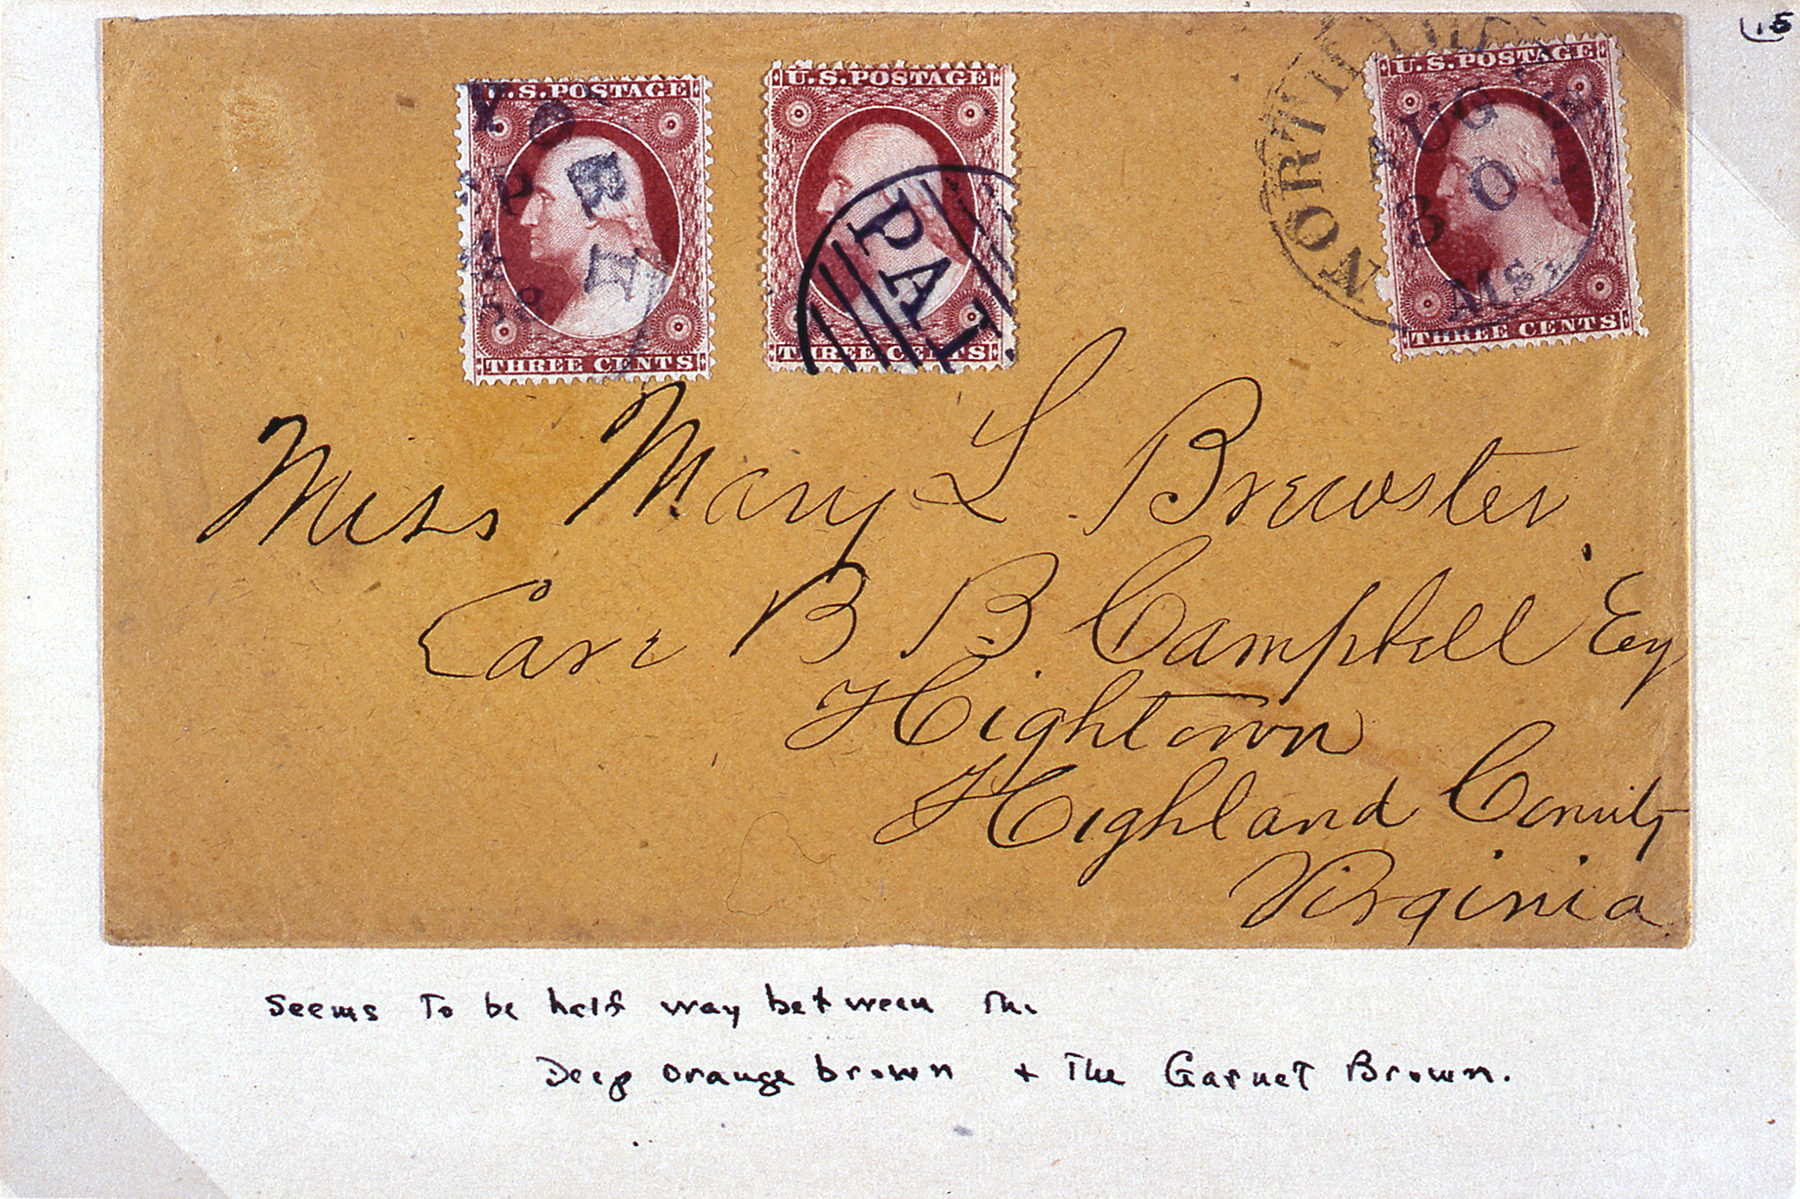 15
U.S. POSTAGE
YORK
SEP
THREE CENTS
U.S. POSTAGE
PAI
THREE CENTS
U.S. POSTAGE
AUG
30
Ms.
THREE CENTS
Miss Mary L Brewster
Care B B Campbell Esq
Hightown
Highland County
Virginia
Seems To be half way between The
Deep orange brown + The Garnet Brown.